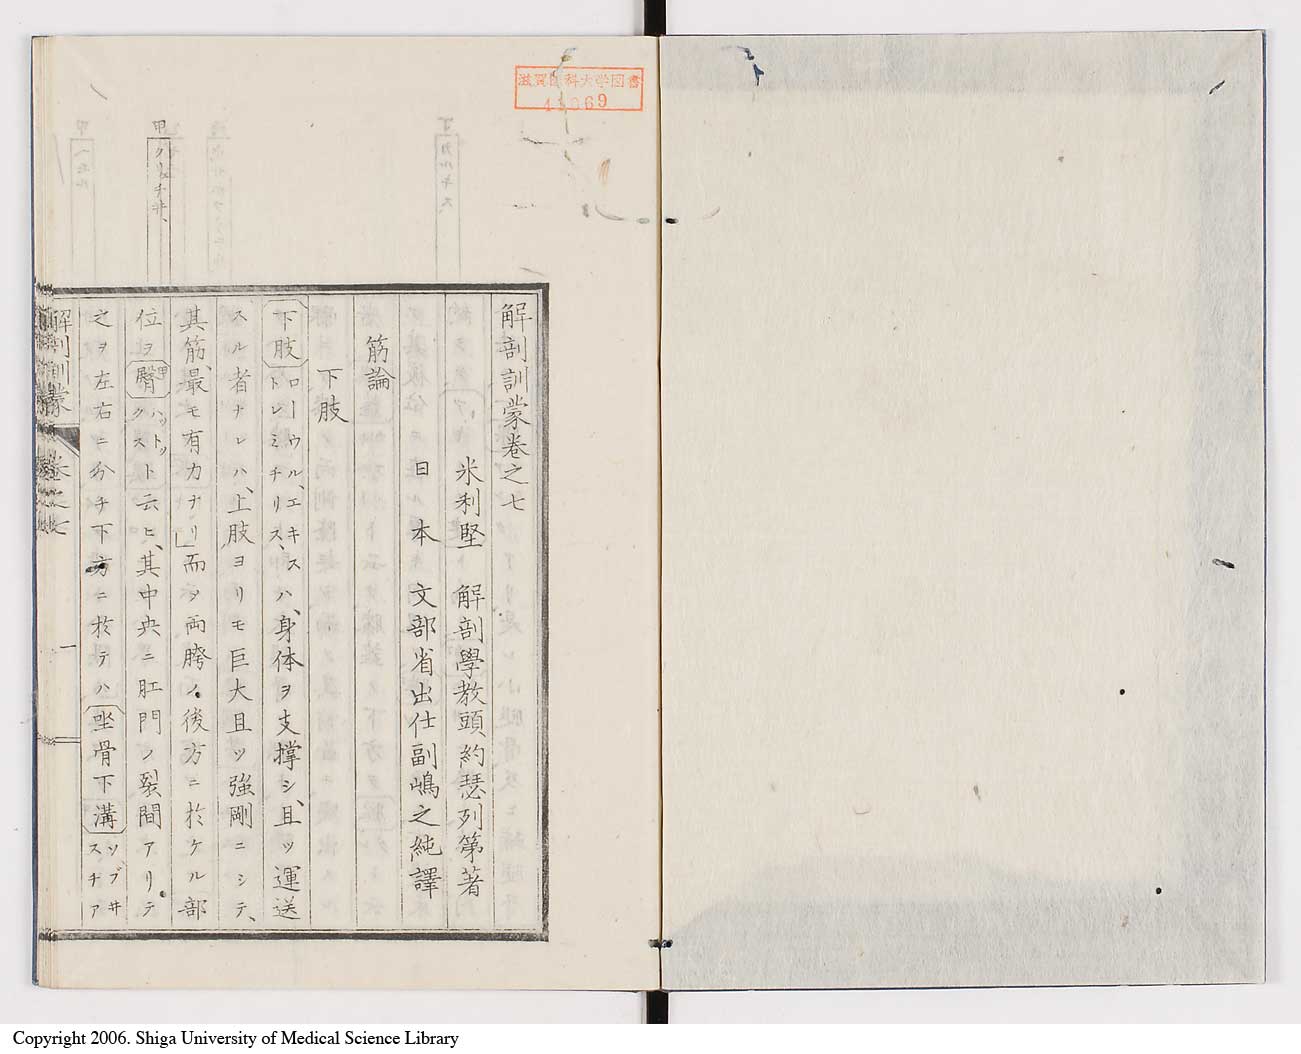 滋賀医科大学図書
解剖訓蒙巻之七
米利堅　解剖學教頭約瑟列第著
日本　文部省出仕副嶋之純譯
筋論
下肢
下肢ローウル、エキストレミチリス、ハ、身体ヲ支撑シ、且ツ運送
スル者ナレハ、上肢ヨリモ巨大且ツ強剛ニシテ、
其筋、最モ有力ナリ」而ヲ両胯ノ後方ニ於ケル部
位ヲ臀ハットックスト云ヒ、其中央ニ肛門ノ裂間アリテ
之ヲ左右ニ分チ下方ニ於テハ坐骨下溝ソッブ井スチア
甲
クリチ井、
解剖訓蒙
巻之七
一
丁
カルキス
Copyright 2006. Shiga University of Medical Science Library